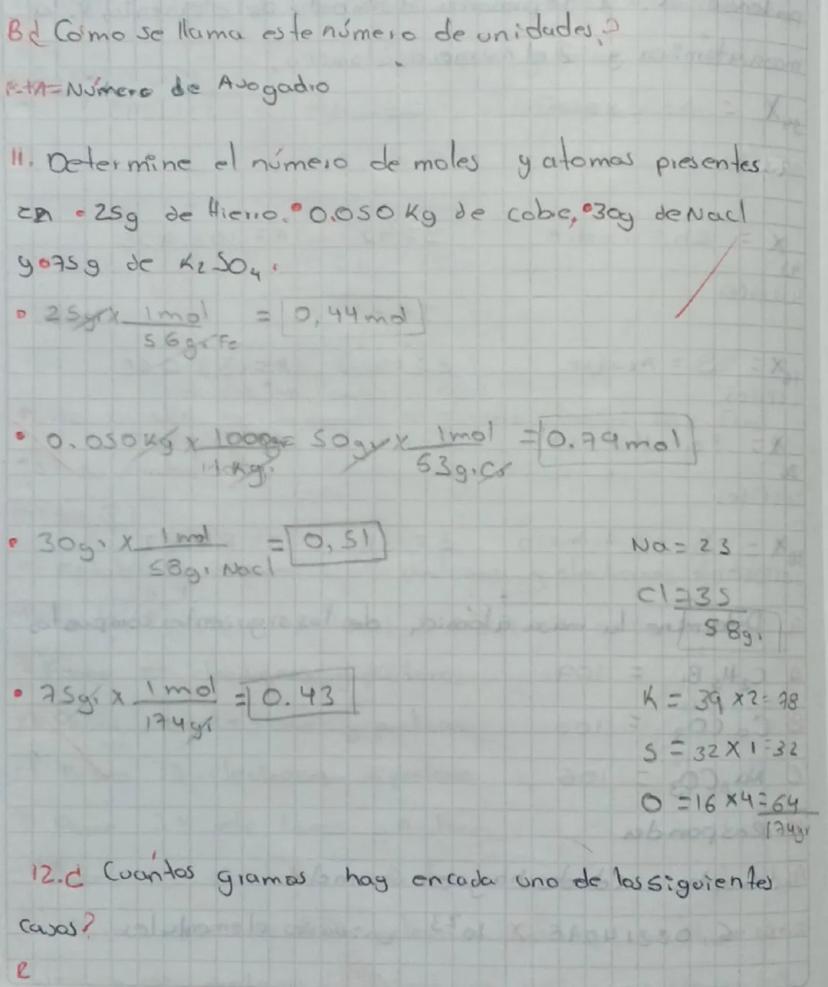 B¿ Cómo se llama este número de unidades.?
RtA=Número de Avogadro
11. Determine el número de moles y atomos presentes
en • 25g de Hierro. • 0.050 Kg de cobe, • 30g de Nacl
y • 75g de K₂SO₄.
• 25gr x 1mol / 56gr Fe = 0,44mol
• 0.050Kg x 1000g / 1Kg = 50gr x 1mol / 63g. Cr = 0.79mol
• 30g. x 1mol / 58g. Nacl = 0,51
Na = 23
Cl = 35
58g.
• 75g x 1mol / 174gr = 0.43
K = 39 x 2 = 78
S = 32 x 1 = 32
O = 16 x 4 = 64
174gr
12.¿ Cuántos gramos hay en cada uno de los siguientes
casos?
R